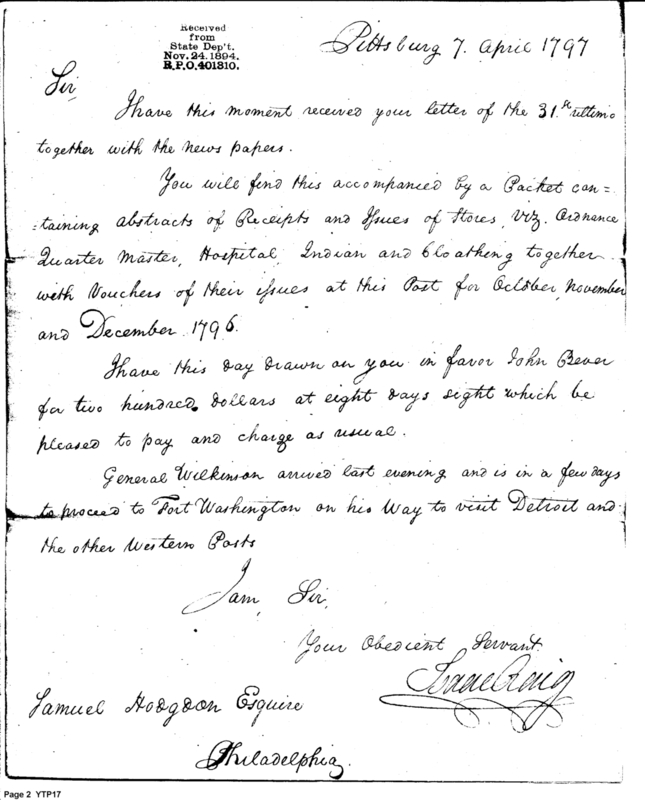 Received
from
State Dep't.
Nov. 24. 1894.
R.P.O. 401310.
Pittsburg 7. April 1797
Sir
I have this moment received your letter of the 31.st ultimo
together with the news papers.
You will find this accompanied by a Packet con=
=taining abstracts of Receipts and Issues of Stores, Viz. Ordnance
Quarter Master, Hospital, Indian and Cloathing together
with Vouchers of their issues at this Post for October, November
and December 1796.
I have this day drawn on you in favor John Bever
for two hundred dollars at eight days sight which be
pleased to pay and charge as usual.
General Wilkinson arrived last evening and is in a few days
to proceed to Fort Washington on his Way to visit Detroit and
the other Western Posts
I am, Sir,
Your Obedient Servant
Isaac Craig
Samuel Hodgdon Esquire
Philadelphia.
Page 2 YTP17